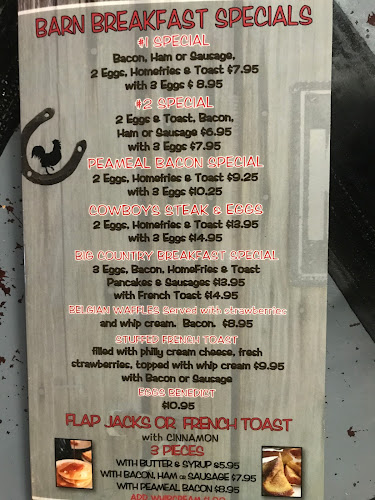 BARN BREAKFAST SPECIALS
#1 SPECIAL
Bacon, Ham or Sausage,
2 Eggs, Homefries & Toast $7.95
with 3 Eggs $ 8.95
#2 SPECIAL
2 Eggs & Toast, Bacon,
Ham or Sausage $6.95
with 3 Eggs $7.95
PEAMEAL BACON SPECIAL
2 Eggs, Homefries & Toast $9.25
with 3 Eggs $10.25
COWBOYS STEAK & EGGS
2 Eggs, Homefries & Toast $13.95
with 3 Eggs $14.95
BIG COUNTRY BREAKFAST SPECIAL
3 Eggs, Bacon, HomeFries & Toast
Pancakes & Sausages $13.95
with French Toast $14.95
BELGIAN WAFFLES Served with strawberries
and whip cream. Bacon. $8.95
STUFFED FRENCH TOAST
filled with philly cream cheese, fresh
strawberries, topped with whip cream $9.95
with Bacon or Sausage
EGGS BENEDICT
$10.95
FLAP JACKS OR FRENCH TOAST
with CINNAMON
3 PIECES
WITH BUTTER & SYRUP $5.95
WITH BACON, HAM OR SAUSAGE $7.95
WITH PEAMEAL BACON $8.95
ADD WHIPCREAM